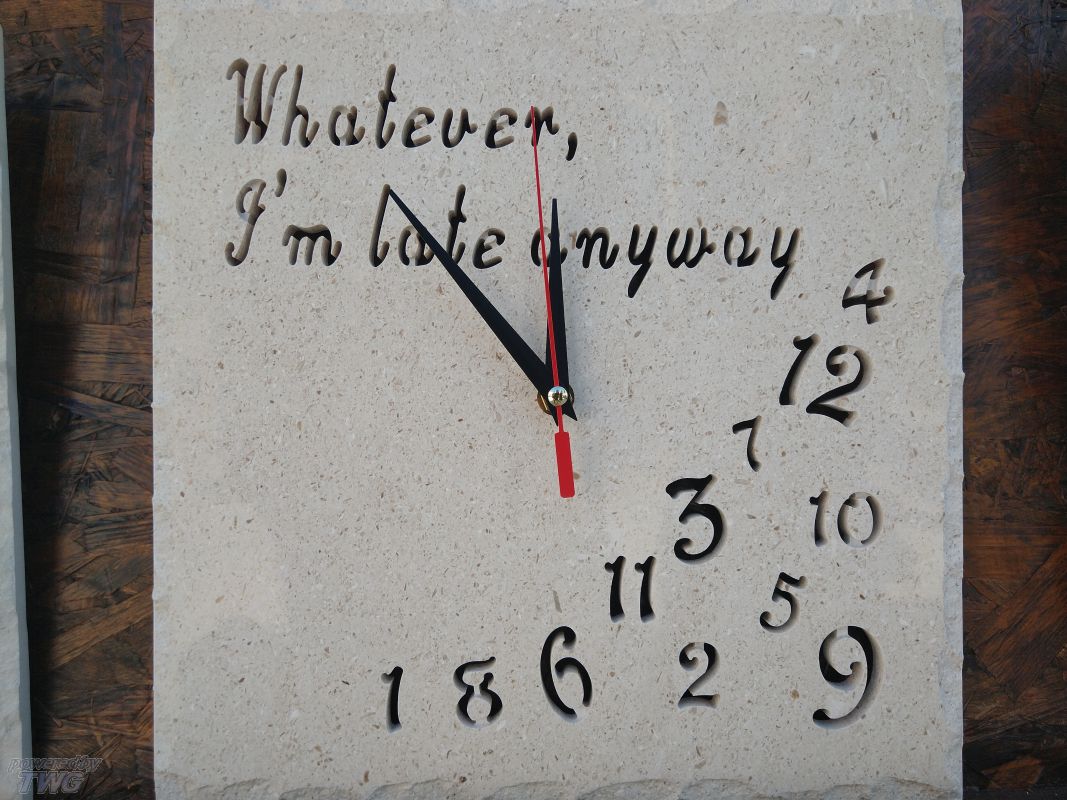 Whatever,
I'm late anyway
4
12
7
3
10
11
5
6
2
9
1
8
powered by
TWG